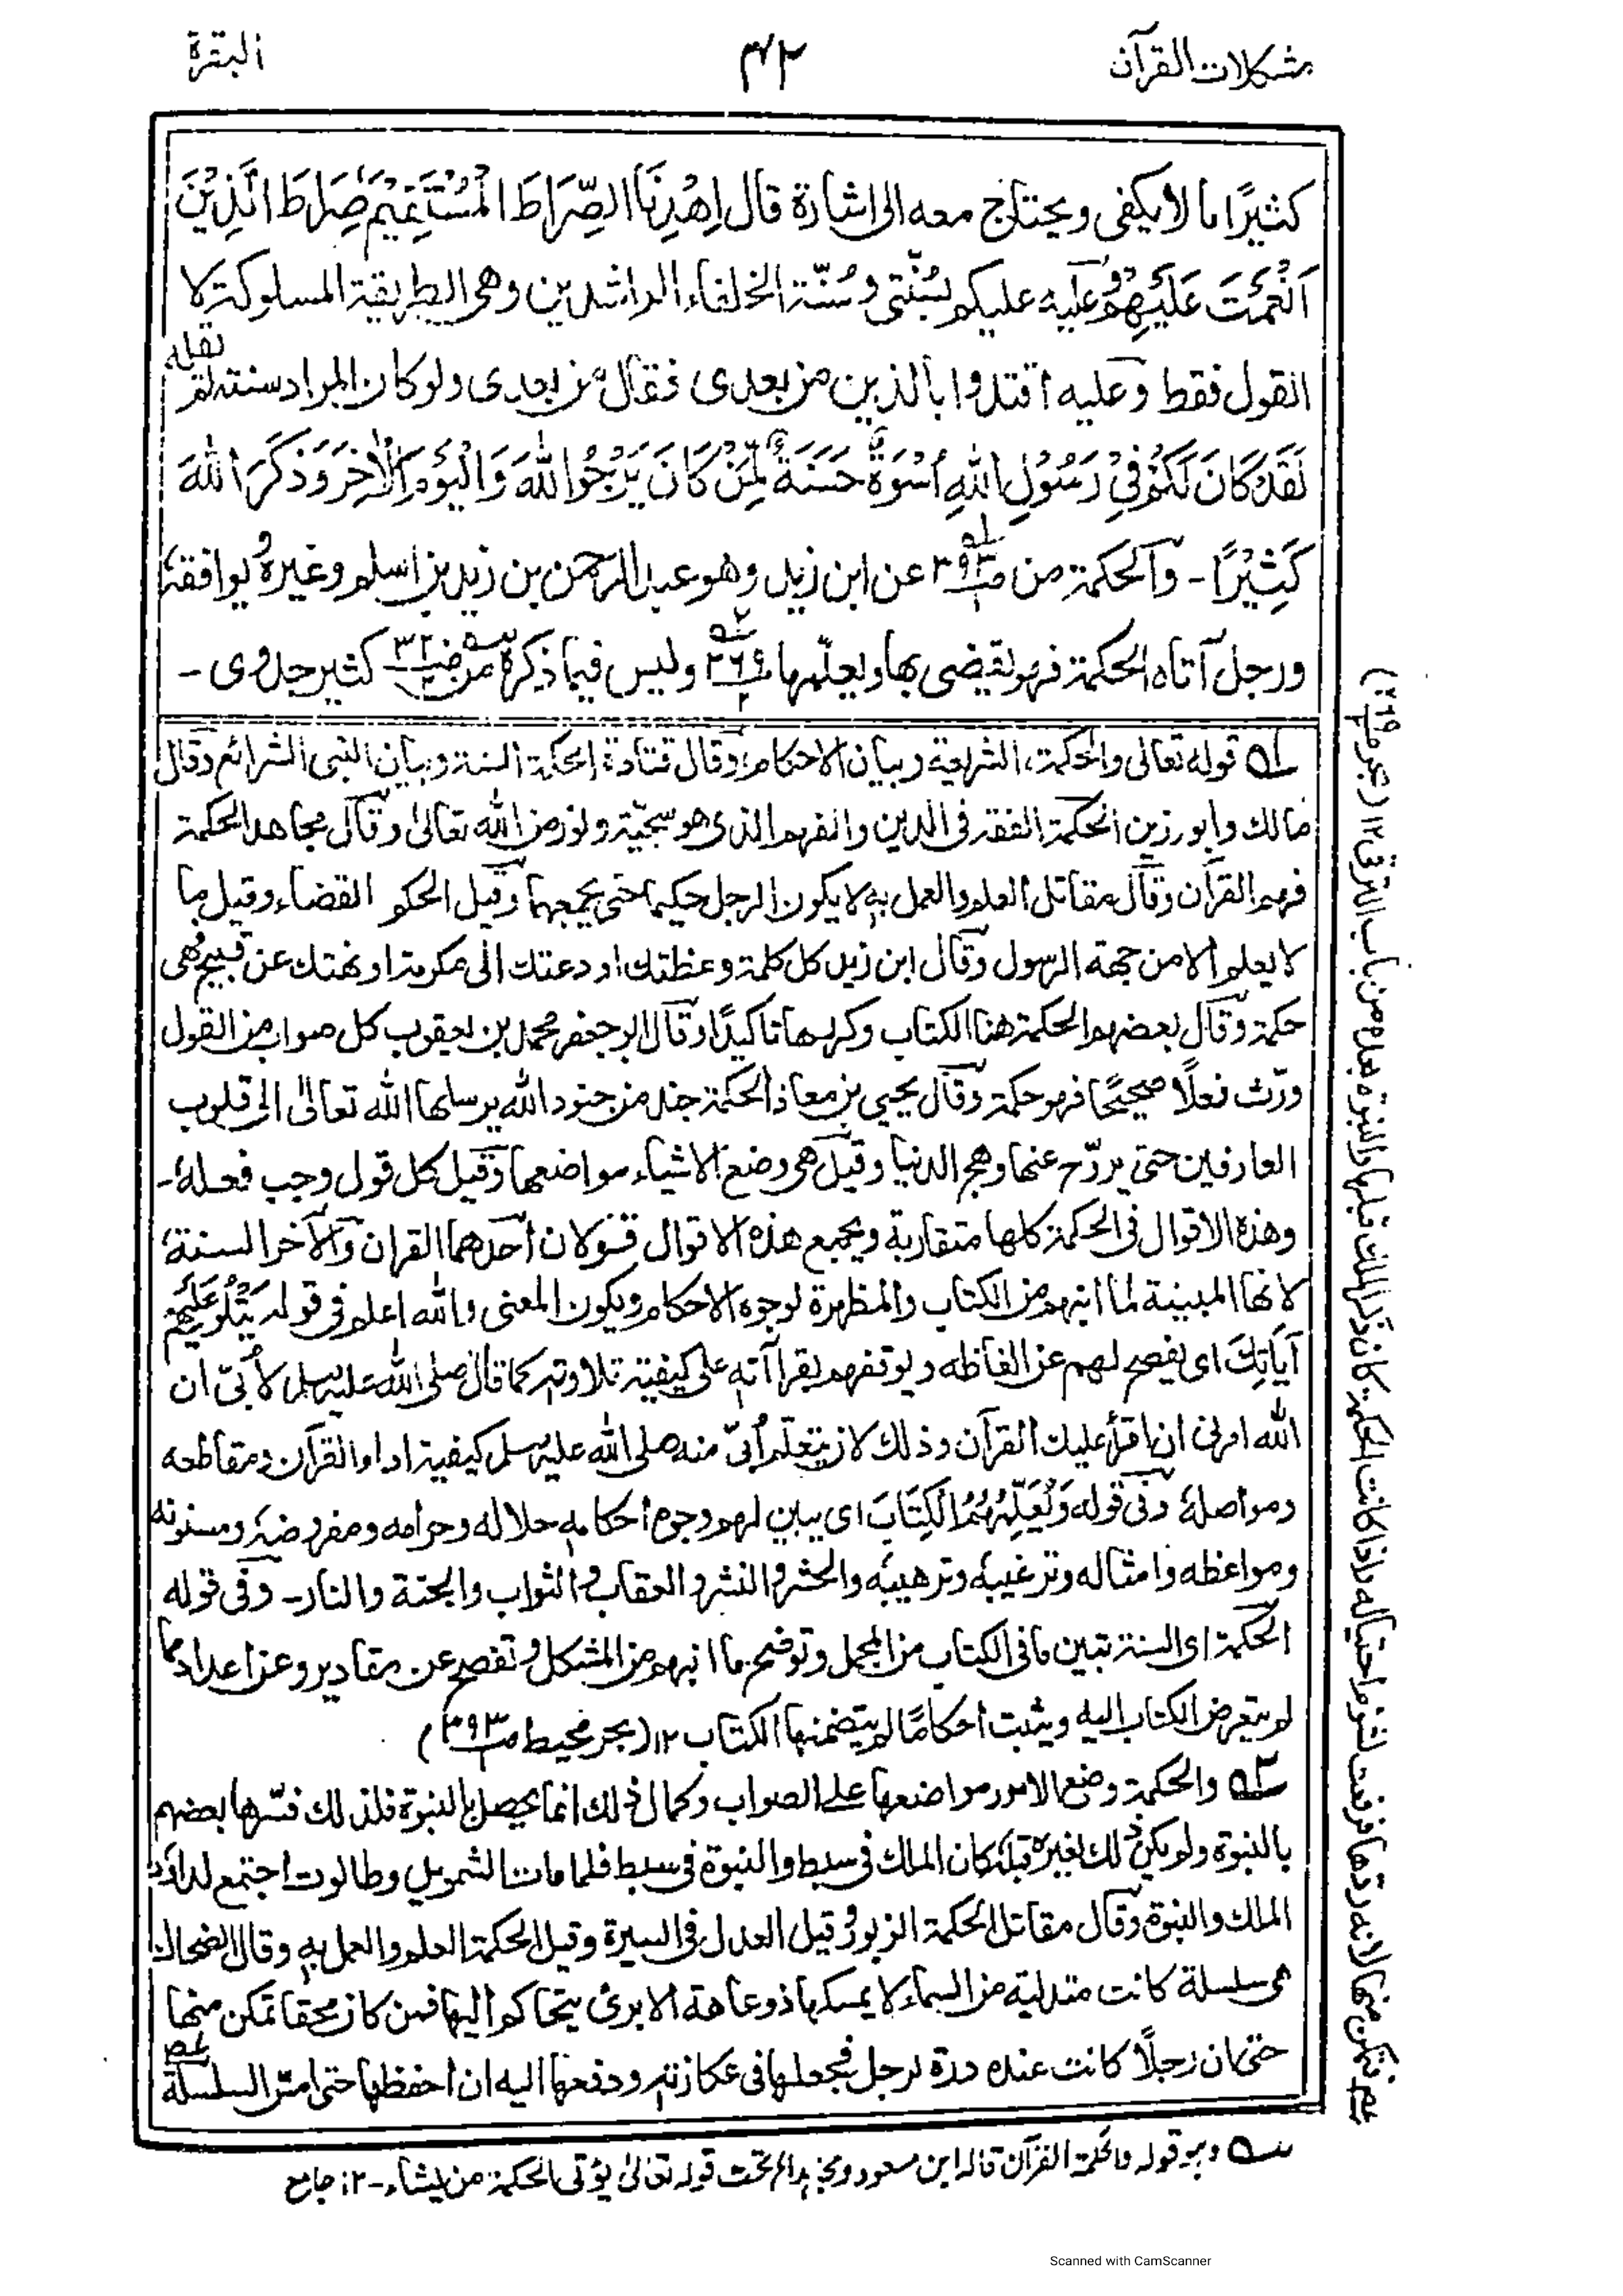 مشكلات القرآن
٤٢
البقرة
كثيرًا ما لا يكفى ويحتاج معه الى اشارة قال اِهْدِنَا الصِّرَاطَ الْمُسْتَقِيْمَ صِرَاطَ الَّذِيْنَ
اَنْعَمْتَ عَلَيْهِمْ وعليه عليكم بسُنّتى وسُنّة الخلفاء الراشدين وهى الطريقة المسلوكة لا
القول فقط وعليه اقتدوا بالذين من بعدى فقال من بعدى ولو كان المراد سنته لقر نقله
لَقَدْ كَانَ لَكُمْ فِيْ رَسُوْلِ اللهِ اُسْوَةٌ حَسَنَةٌ لِّمَنْ كَانَ يَرْجُوا اللهَ وَالْيَوْمَ الْاٰخِرَ وَذَكَرَ اللهَ
كَثِيْرًا - والحكمة من ص٣٩٣/١ عن ابن زيد وهو عبد الرحمن بن زيد بن اسلم وغيره يوافقه
ورجل آتاه الحكمة فهو يقضى بها ويعلّمها ص٢٦٩/٢ وليس فيما ذكره من ص٣٢٠/٢ كثير جدوى -
١ه قوله تعالى والحكمة، الشريعة وبيان الاحكام وقال قتادة الحكمة السنة وبيان النبى الشرائع وقال
مالك وابورزين الحكمة الفقه فى الدين والفهم الذى هو سجيّة ونور من الله تعالى وقال مجاهد الحكمة
فهم القرآن وقال مقاتل العلم والعمل به لا يكون الرجل حكيما حتى يجمعهما وقيل الحكم القضاء وقيل ما
لا يعلم الا من جهة الرسول وقال ابن زيد كل كلمة وعظتك او دعتك الى مكرمة او نهتك عن قبيح فهى
حكمة وقال بعضهم الحكمة هنا الكتاب وكررها تاكيدًا وقال ابو جعفر محمد بن يعقوب كل صواب من القول
ورّث فعلًا صحيحًا فهو حكمة وقال يحيى بن معاذ الحكمة جند من جنود الله يرسلها الله تعالى الى قلوب
العارفين حتى يروّح عنها وهج الدنيا وقيل هى وضع الاشياء مواضعها وقيل كل قول وجب فعله -
وهذه الاقوال فى الحكمة كلها متقاربة ويجمع هذه الاقوال قولان احدهما القران والآخر السنة
لانها المبينة لما انبهم من الكتاب والمظهرة لوجوه الاحكام ويكون المعنى والله اعلم فى قوله يَتْلُوْ عَلَيْهِمْ
آيَاتِكَ اى يفصح لهم عن الفاظه ويوقفهم بقراآته على كيفية تلاوته كما قال صلى الله عليه وسلم لأبىّ ان
الله امرنى ان اقرأ عليك القرآن وذلك لان يتعلم أبىّ منه صلى الله عليه وسلم كيفية اداء القرآن ومقاطعه
ومواصله وفى قوله وَيُعَلِّمُهُمُ الْكِتَابَ اى يبين لهم وجوه احكامه حلاله وحرامه ومفروضه ومسنونه
ومواعظه وامثاله وترغيبه وترهيبه والحشر والنشر والعقاب والثواب والجنة والنار - وفى قوله
الحكمة اى السنة تبين ما فى الكتاب من المجمل وتوضح ما انبهم من المشكل وتفصح عن مقادير وعن اعداد مما
لم يتعرض الكتاب اليه ويثبت احكامًا لم يتضمنها الكتاب ١٢ (بحر محيط ص٣٩٣/١)
٢ه والحكمة وضع الامور مواضعها على الصواب وكمال ذلك انما يحصل بالنبوة فلذلك فسّرها بعضهم
بالنبوة ولم يكن ذلك لغيره قبله كان الملك فى سبط والنبوة فى سبط فلما مات الشمويل وطالوت اجتمع لداؤد
الملك والنبوة وقال مقاتل الحكمة الزبور وقيل العدل فى السيرة وقيل الحكمة العلم والعمل به وقال الضحاك
هى سلسلة كانت متدلية من السماء لا يمسكها ذو عاهة الا برئ يتحاكم اليها فمن كان محقا تمكن منها
حتى ان رجلًا كانت عنده درة لرجل فجعلها فى عكازته ودفعها اليه ان احفظها حتى امسّ السلسلة
فلم يتمكن منها لانه ردها فرفعت لشؤم احتياله واذا كانت الحكمة كان ذكر الملك قبلها والنبوة بعده من باب الترقى ١٢ (بحر ص٢٦٩/٢)
سه وهو قوله والحكمة القرآن قاله ابن مسعود ومجاهد الخ تحت قوله تعالى يؤتى الحكمة من يشاء - ١٢: جامع
Scanned with CamScanner